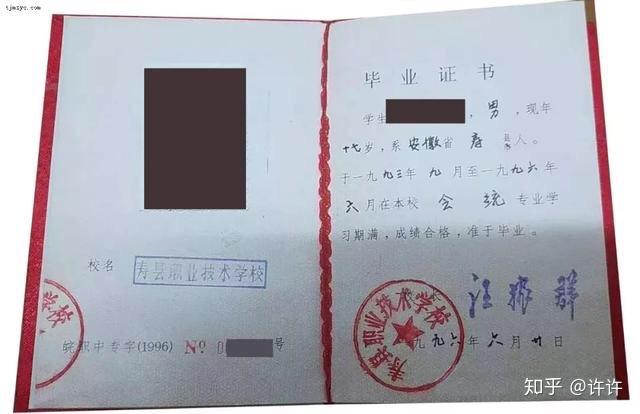 tjmzyc.com
校名 寿县职业技术学校
寿县职业技术学校
皖职中专字(1996) № 0 号
毕业证书
学生 男，现年
十七岁，系安徽省寿县人。
于一九九三年九月至一九九六年
六月在本校会统专业学
习期满，成绩合格，准于毕业。
校长
寿县职业技术学校
一九九六年六月廿日
知乎 @许许